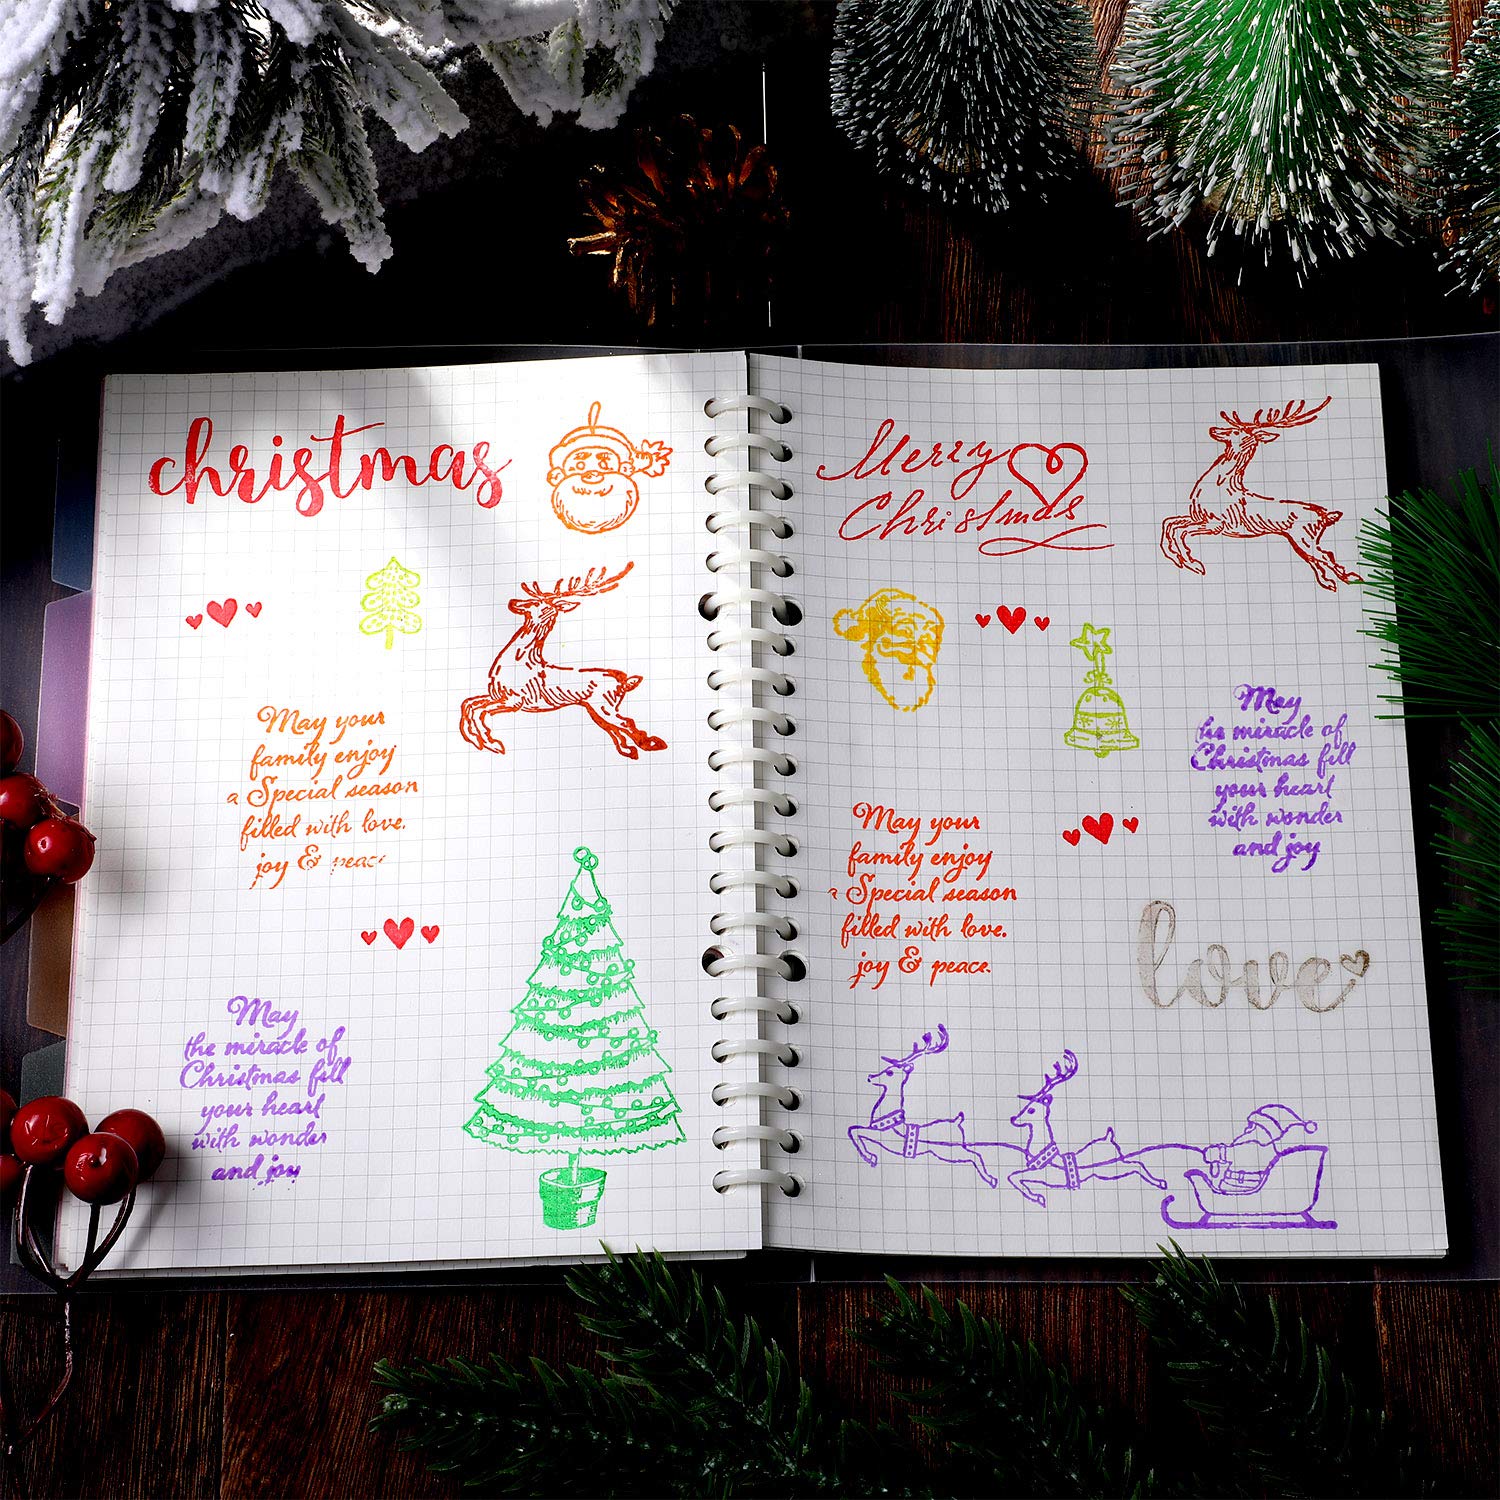 christmas
May your
family enjoy
a Special season
filled with love.
joy & peace
May
the miracle of
Christmas fill
your heart
with wonder
and joy
Merry
Christmas
May
he miracle of
Christmas fill
your heart
with wonder
and joy
May your
family enjoy
a Special season
filled with love.
joy & peace.
love